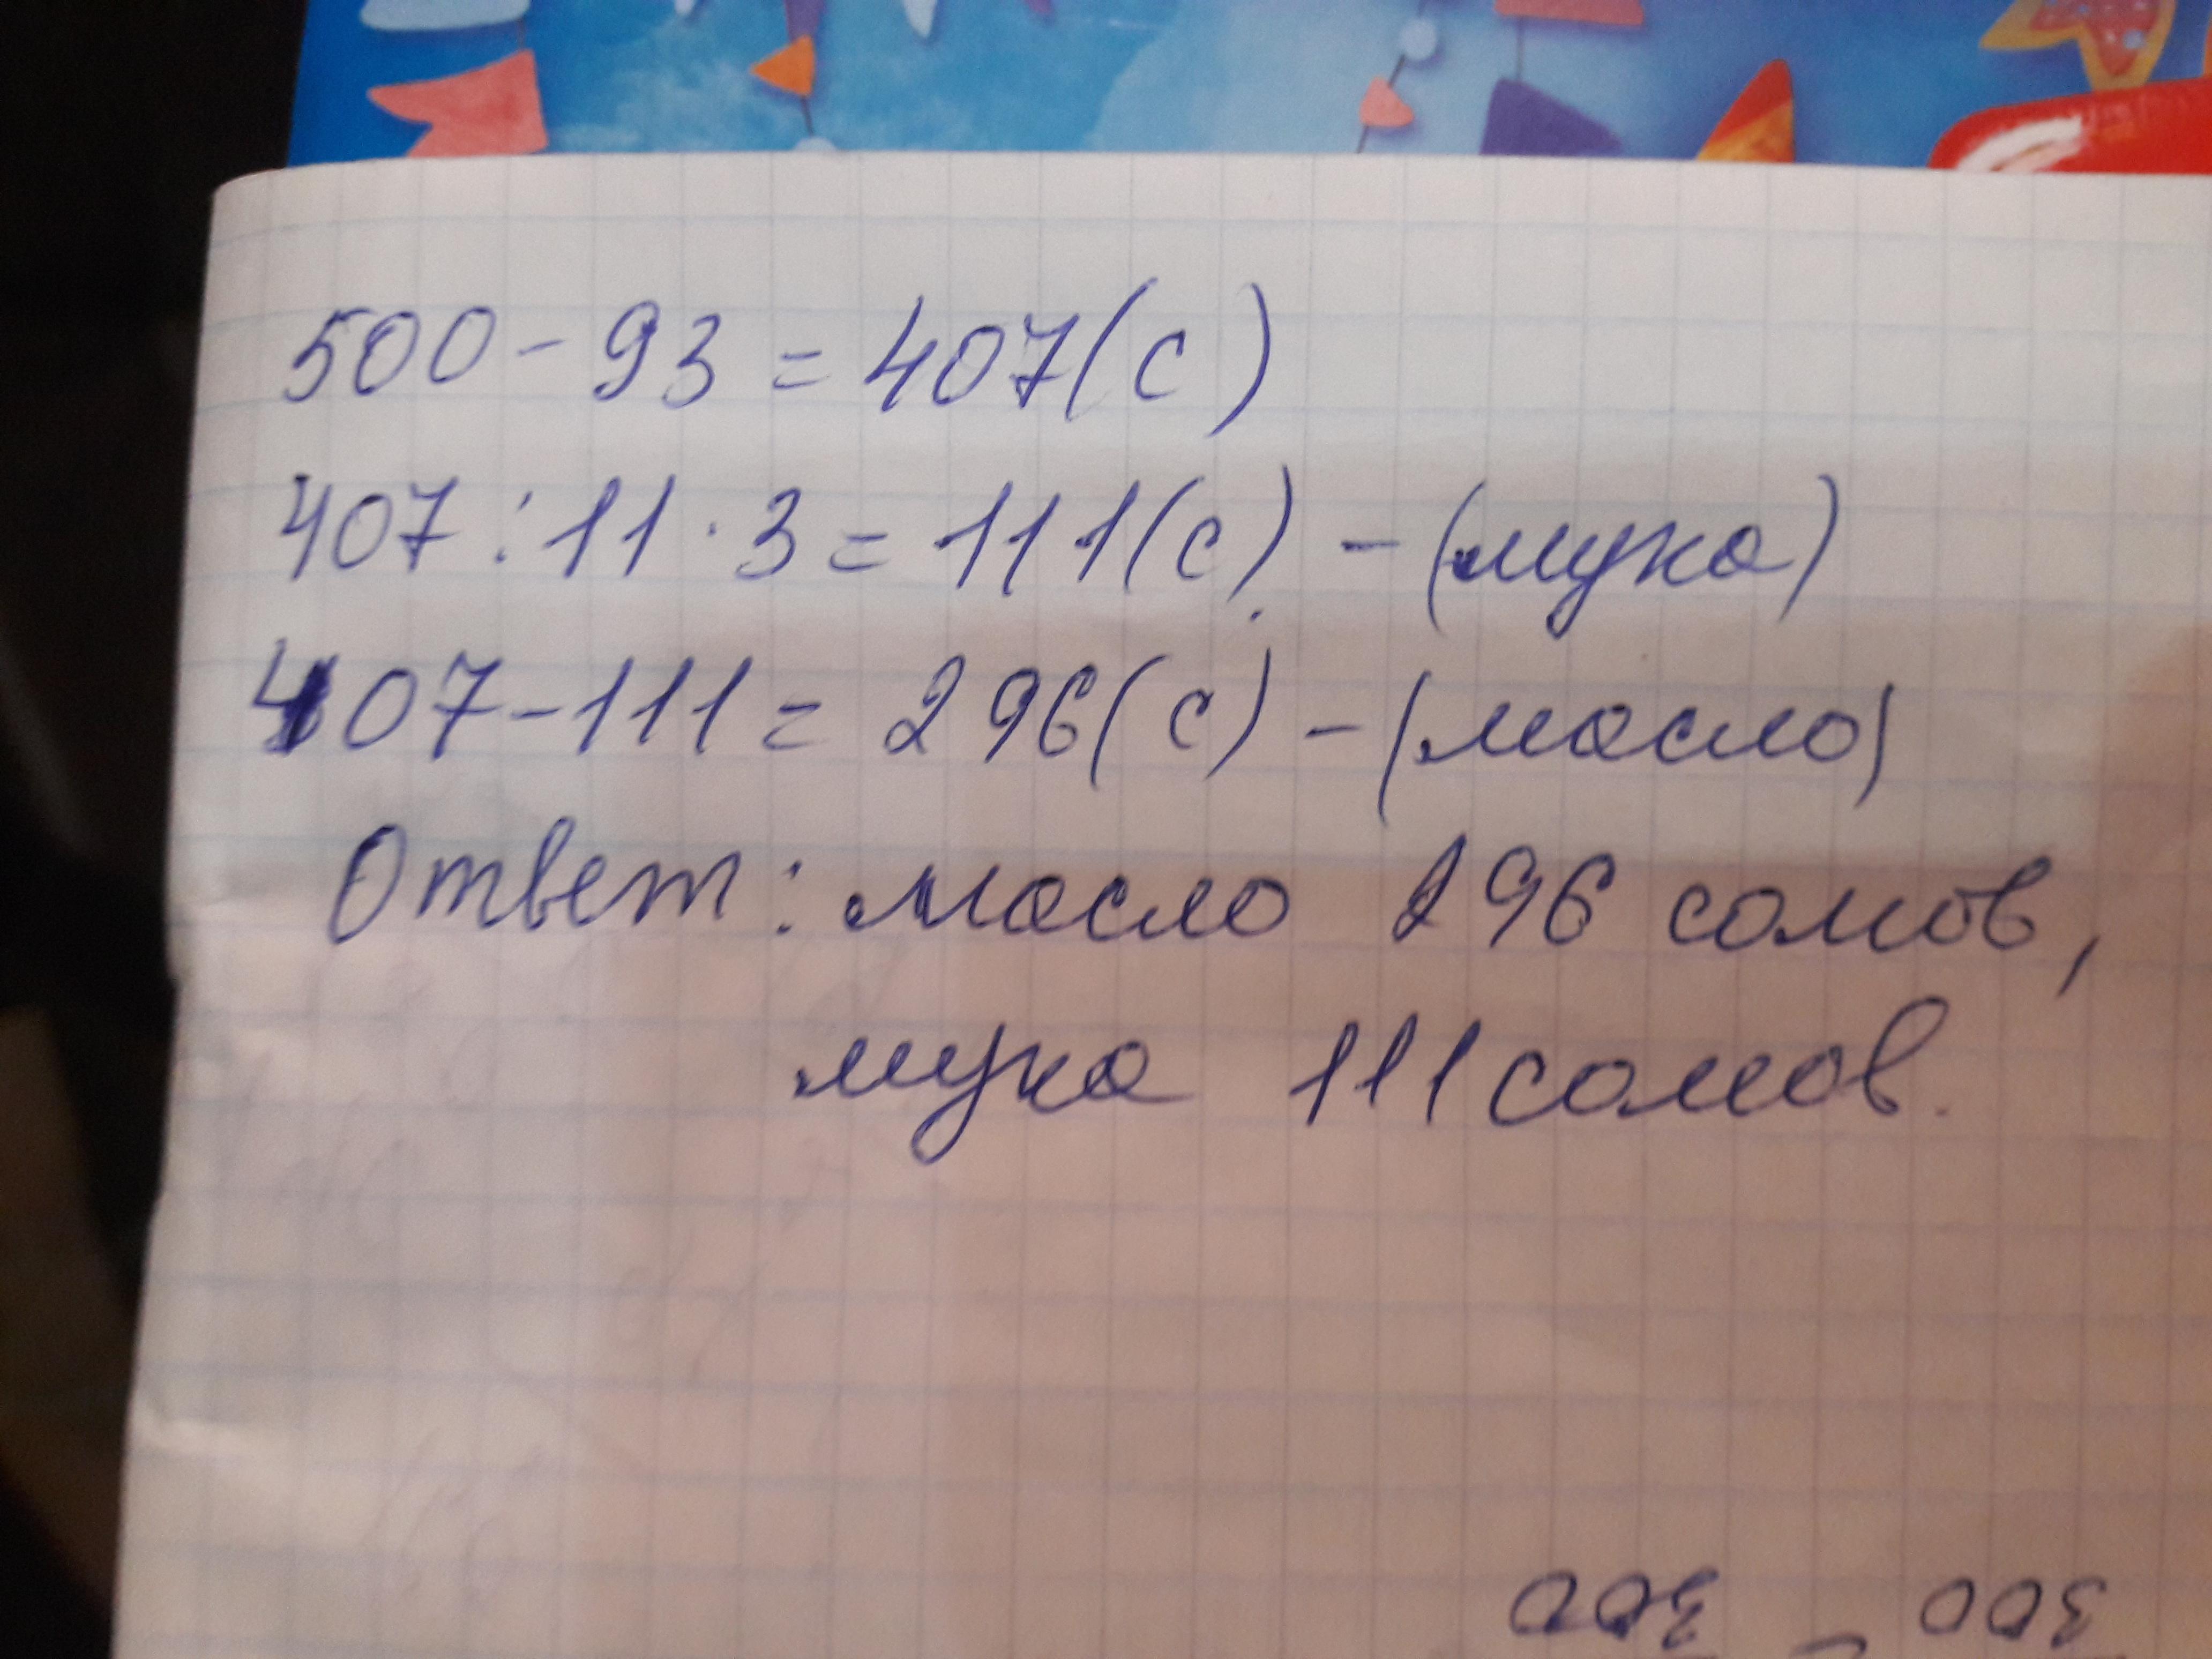 500 - 93 = 407(с)
407 : 11 · 3 = 111(с) - (мука)
407 - 111 = 296(с) - (масло)
Ответ: масло 296 сомов,
мука 111 сомов.
300 - 300